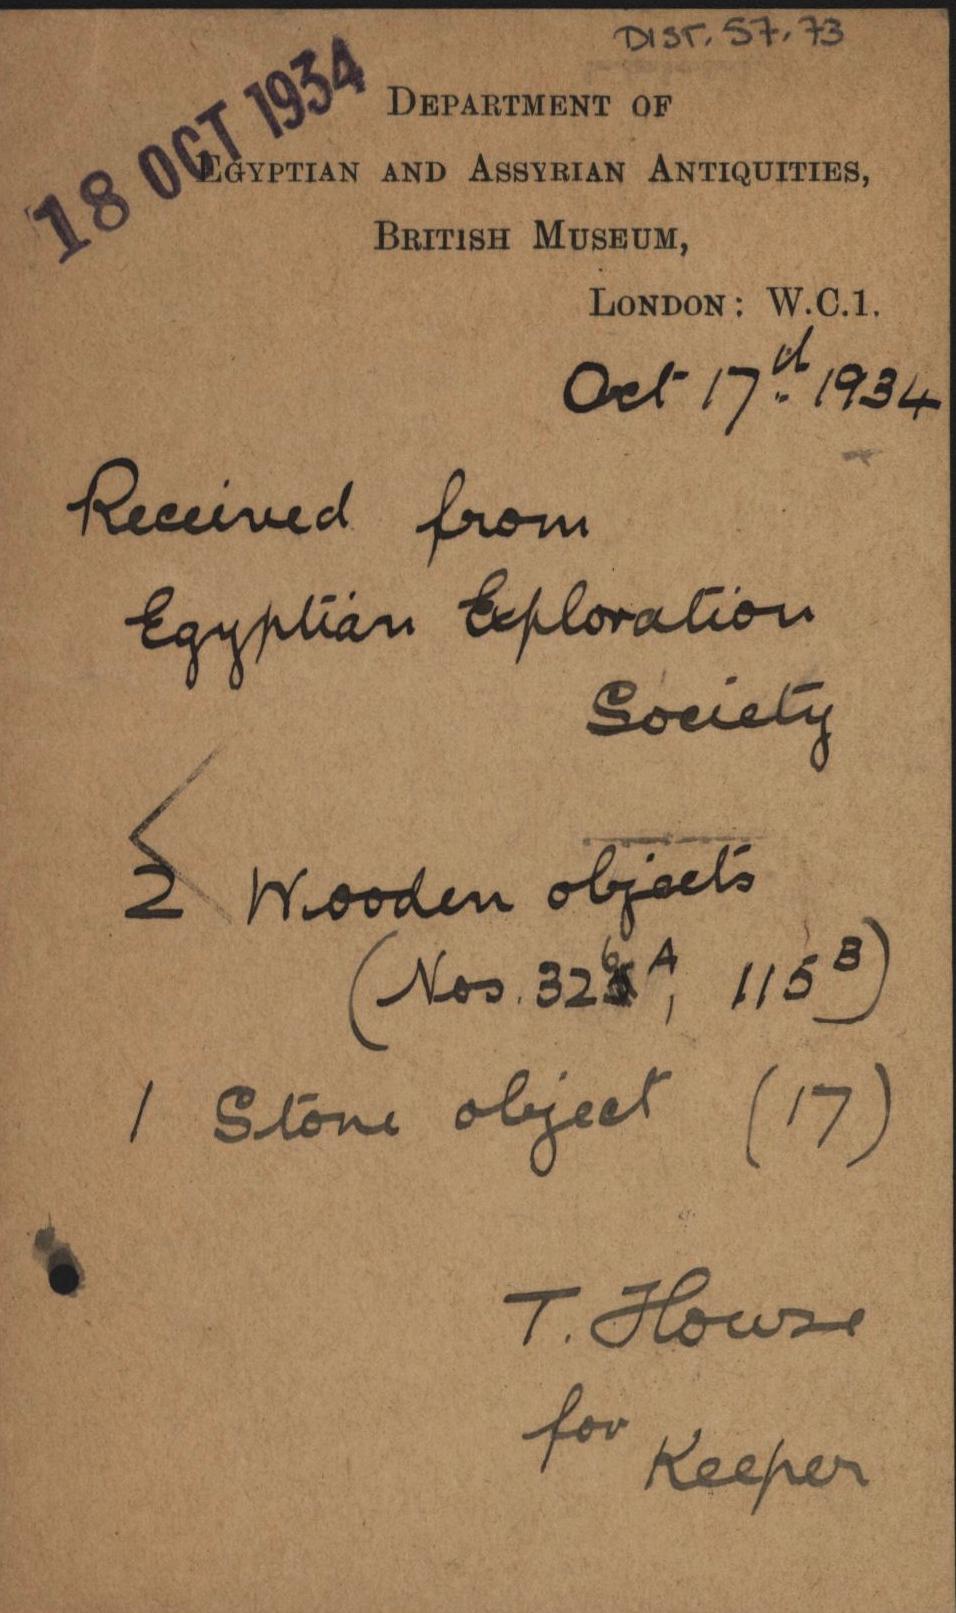 DIST. 57.73
18 OCT 1934
DEPARTMENT OF
EGYPTIAN AND ASSYRIAN ANTIQUITIES,
BRITISH MUSEUM,
LONDON: W.C.1.
Oct 17th 1934
Received from
Egyptian Exploration
Society
2 Wooden objects
(Nos. 326 A, 115 B)
1 Stone object (17)
T. Howse
for Keeper